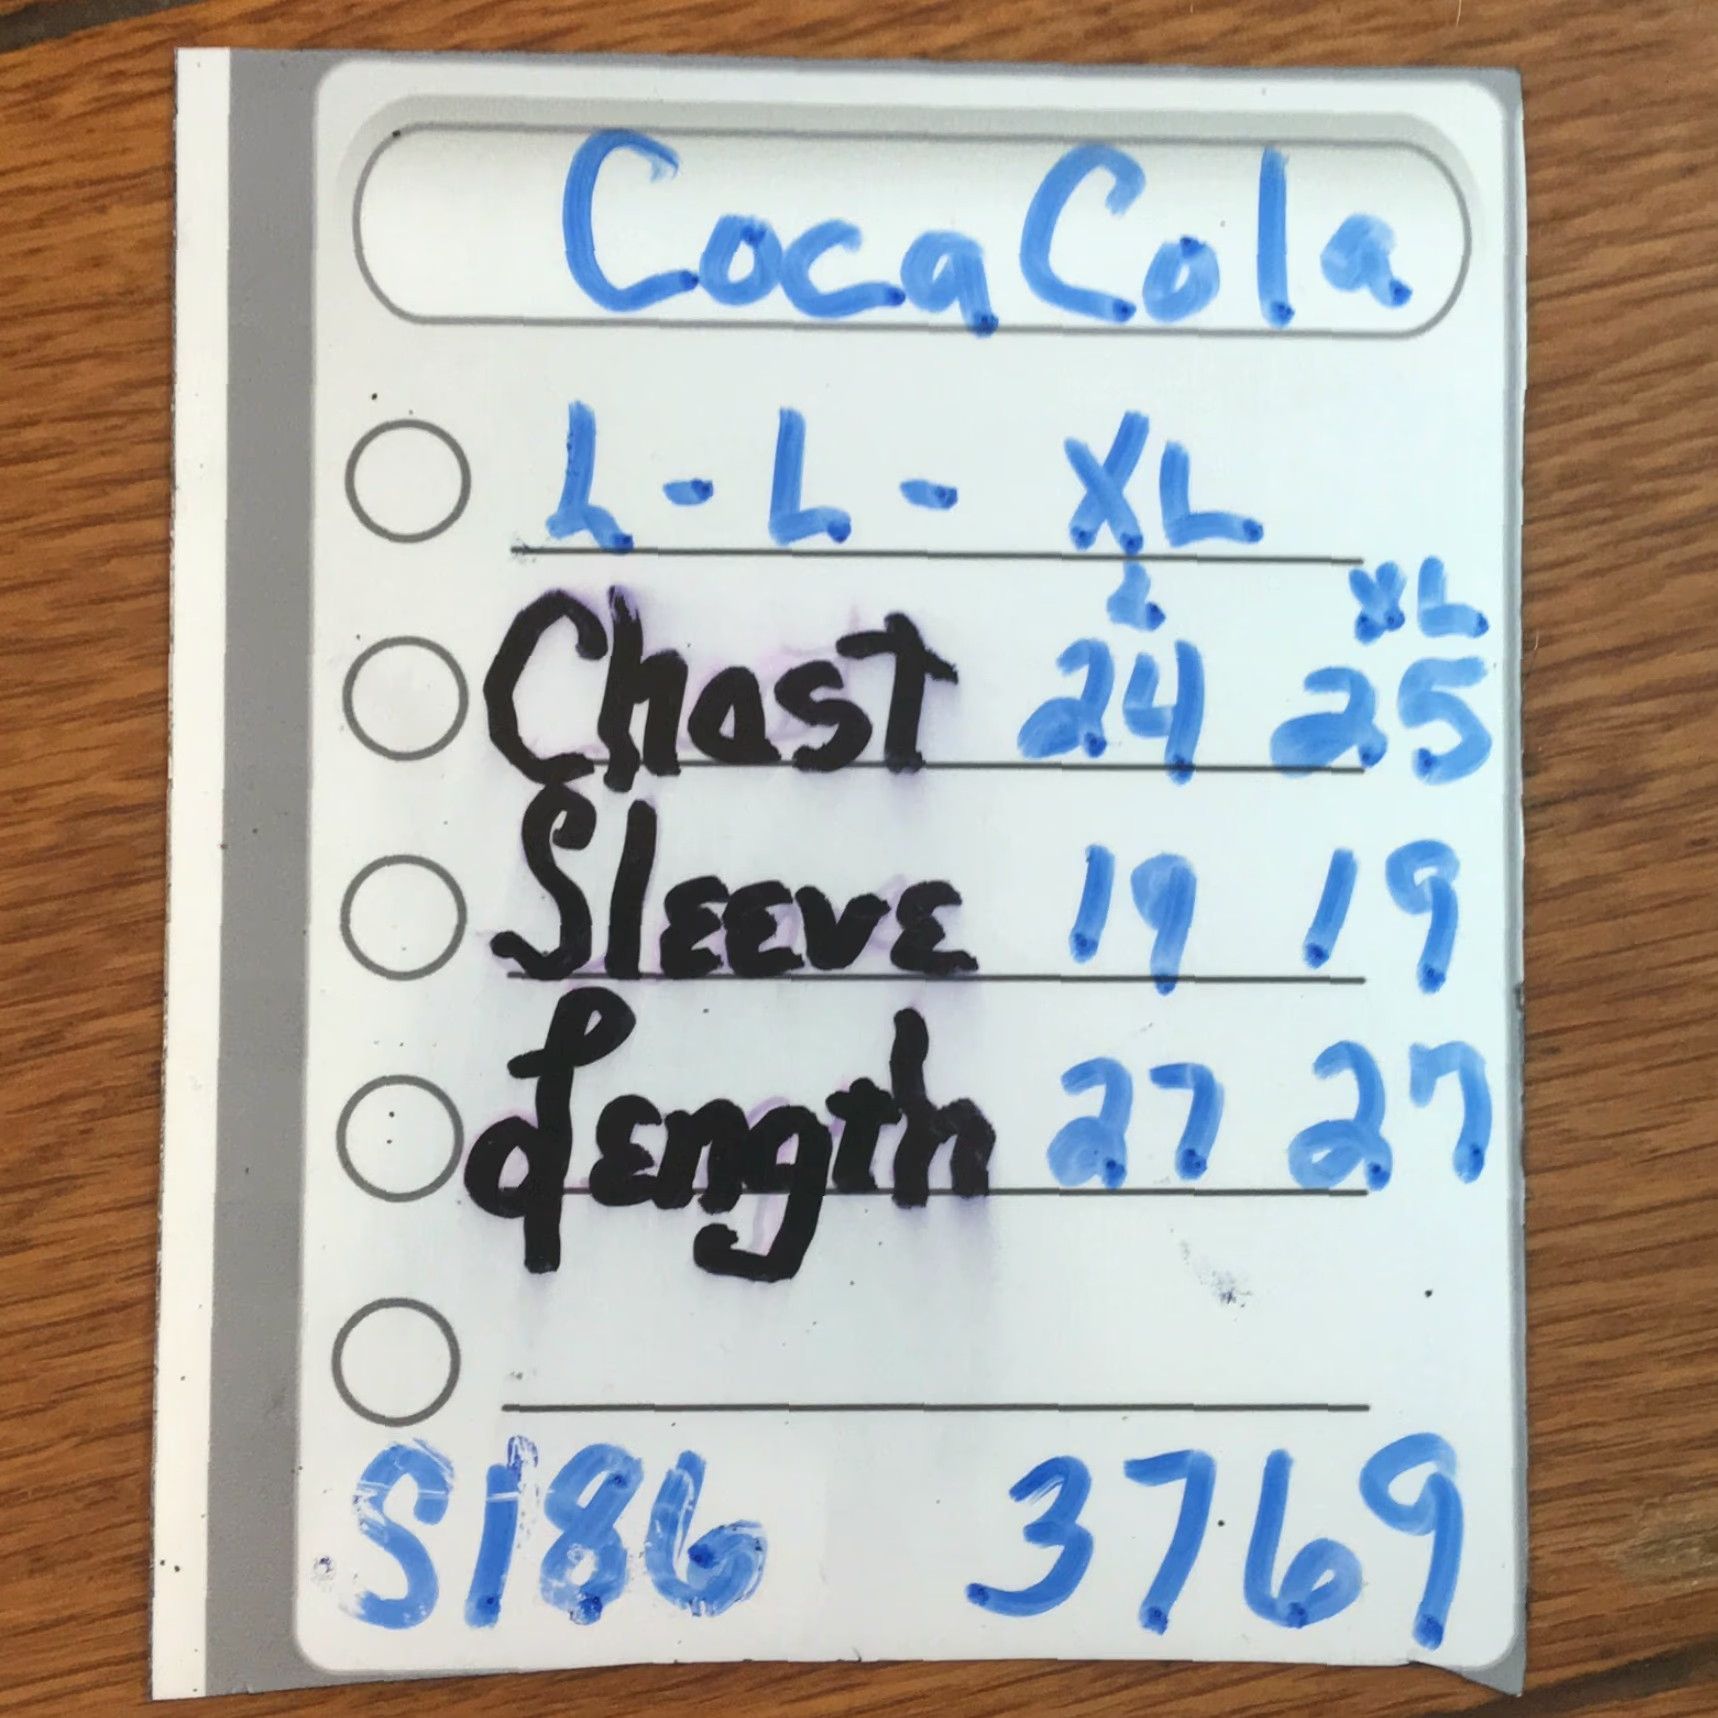 Coca Cola
L - L - XL
L XL
Chast 24 25
Sleeve 19 19
Length 27 27
S186 3769